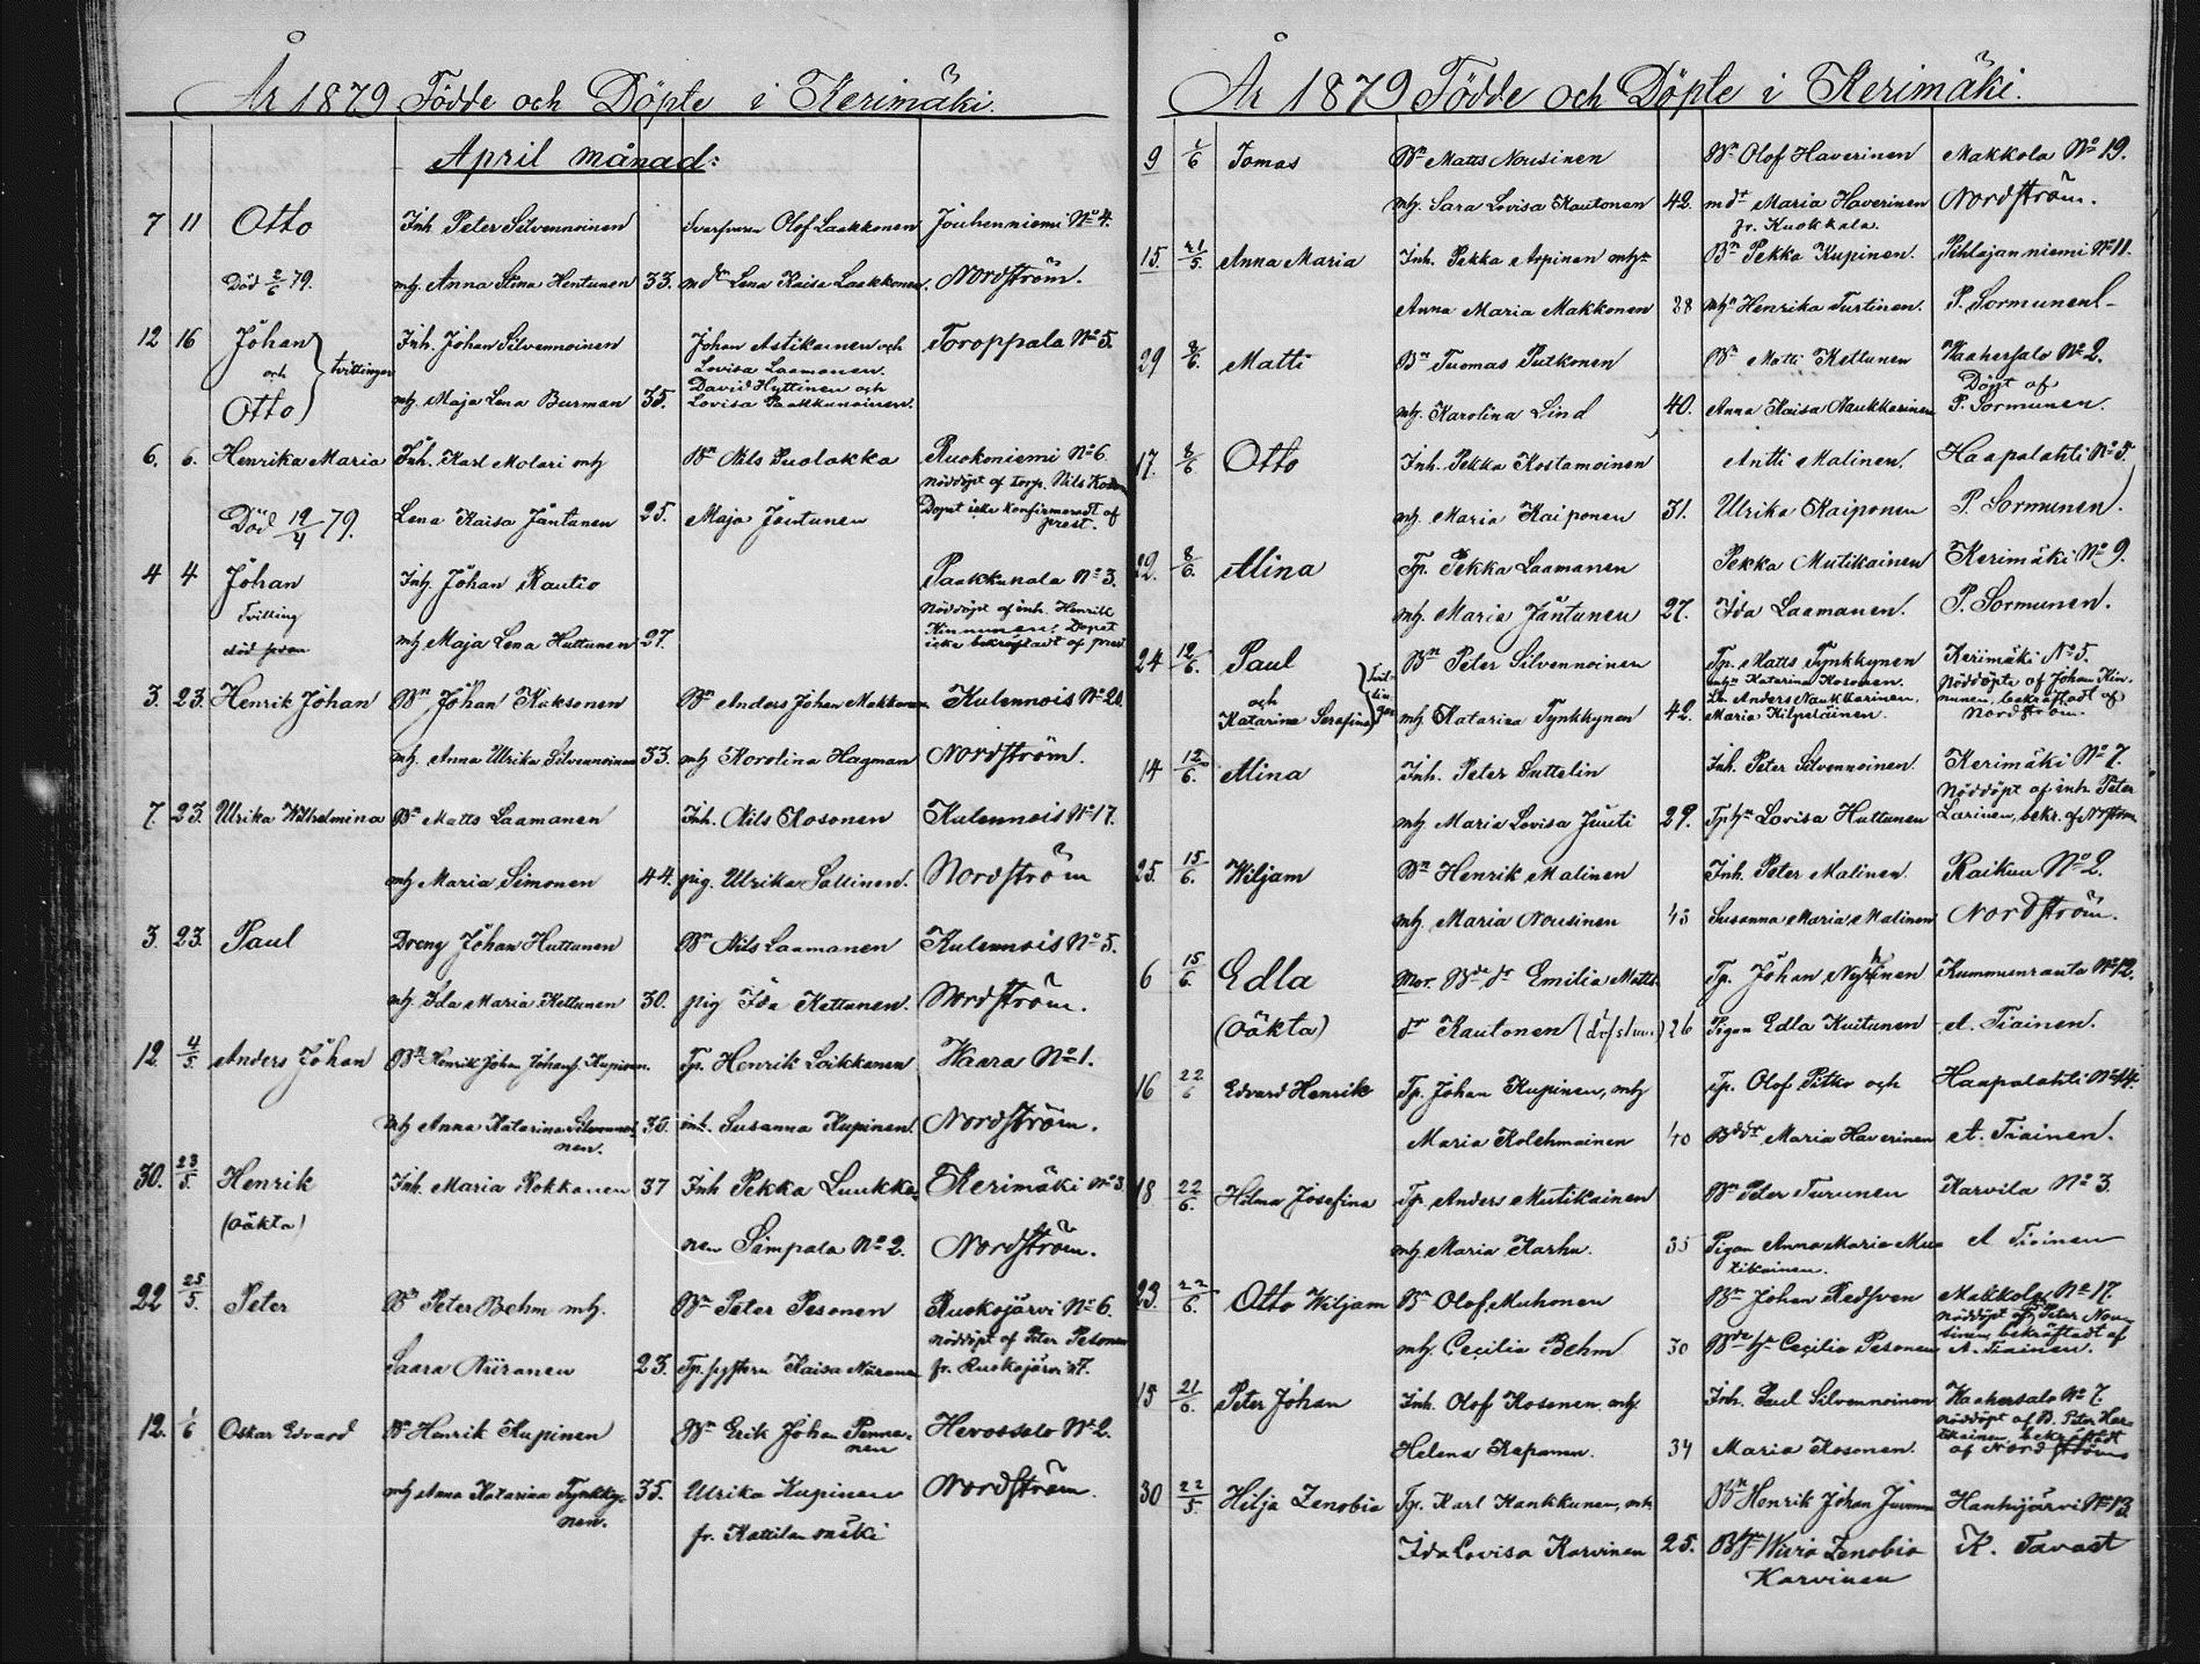 År 1879 Födde och Döpte i Kerimäki.
April månad:
7 11 Otto Inh Peter Silvennoinen Svarfvaren Olof Laakkonen Jouhenniemi No 4.
Död 2/6 79. mh. Anna Stina Hentunen 33. md:r Lena Kaisa Laakkonen. Nordström.
12 16 Johan Inh. Johan Silvennoinen Johan Astikainen och Toroppala No 5.
och tvillingar Lovisa Laamanen.
Otto mh. Maja Lena Burman 35. David Hyttinen och
Lovisa Paakkunainen.
6. 6. Henrika Maria Inh. Karl Molari mh Bn Nils Puolakka Ruokoniemi No 6
nöddöpt af torp. Nils
Död 19/4 79. Lena Kaisa Jäntanen 25. Maja Jäntunen Dopet icke konfirmeradt af
prest.
4 4 Johan Inh. Johan Rautio Paakkunala No 3.
Tvilling Nöddöpt af inh. Henrik
mh Maja Lena Huttunen 27. Kinnunen. Dopet
död icke bekräftadt af prest
3. 23. Henrik Johan Bn Johan Kaksonen Bn Anders Johan Makkonen Kulennois No 20.
mh. Anna Ulrika Silvennoinen 33. mh Karolina Hagman Nordström.
7. 23. Ulrika Wilhelmina Bn Matts Laamanen Inh. Nils Kosonen Kulennois No 17.
mh Maria Simonen 44. pig. Ulrika Sallinen. Nordström
3. 23. Paul Dreng Johan Huttunen Bn Nils Laamanen Kulennois No 5.
mh. Ida Maria Kettunen 30. pig Ida Kettunen. Nordström.
12. 4/5. Anders Johan Bn Henrik Johan Johansf. Kupinen. Tp. Henrik Loikkanen Waara No 1.
mh Anna Katarina Silvennoi- inh. Susanna Kupinen. Nordström.
nen.
30. 23/5. Henrik Inh. Maria Rokkanen 37 Inh Pekka Luukko- Kerimäki No 3
(Oäkta) nen Simpala No 2. Nordström.
22 25/5. Peter Bn Peter Behm mh. Bn Peter Pesonen Ruokojärvi No 6.
nöddöpt af Peter Pesonen
Saara Niiranen 23. Tp. systern Kaisa Niiranen fr. Ruokojärvi 7.
12. 1/6 Oskar Edvard Bn Henrik Kupinen Bn Erik Johan Penna- Hevossalo No 2.
nen
mh Anna Katarina Tynkky- 35. Ulrika Kupinen Nordström.
nen. fr. Kattilamäki
År 1879 Födde och Döpte i Kerimäki.
9 1/6 Tomas Bn Matts Nousinen Bn Olof Haverinen Makkola No 19.
mh. Sara Lovisa Kautonen 42. md:r Maria Haverinen Nordström.
fr. Kuokkala.
15. 21/5. Anna Maria Inh. Pekka Arpinen mh Bn Pekka Kupinen. Pihlajanniemi No 11.
Anna Maria Makkonen 38 mh Henrika Turtinen. P. Sormunen
29 8/6. Matti Bn Tuomas Putkonen Bn Matti Kettunen Waahersalo No 2.
Döpt af
mh. Karolina Lind 40. Anna Kaisa Naukkarinen P. Sormunen.
17. 8/6 Otto Inh. Pekka Kostamoinen Antti Malinen. Haapalahti No 5.
mh. Maria Kaiponen 31. Ulrika Kaiponen P. Sormunen.
22. 8/6. Mina Tp. Pekka Laamanen Pekka Mutikainen Kerimäki No 9.
mh. Maria Jäntunen 27. Ida Laamanen. P. Sormunen.
24 12/6. Paul Bn Peter Silvennoinen Tp. Matts Tynkkynen Kerimäki No 5.
Tvil- mh Katarina Kosonen. Nöddöpta af Johan Kin-
och lin- Anders Naukkarinen. nunen, bekräftadt af
Katarina Serafina gar mh Katarina Tynkkynen 42. Maria Kilpeläinen. Nordström.
14 12/6. Mina Inh. Peter Suttelin Inh. Peter Silvennoinen. Kerimäki No 7.
Nöddöpt af inh Peter
mh. Maria Lovisa Juuti 29. Lovisa Huttunen Larinen, bekr. af
25. 15/6. Wiljam Bn Henrik Malinen Inh. Peter Malinen. Raikuu No 2.
mh. Maria Nousinen 45 Susanna Maria Malinen Nordström.
6 15/6. Edla Mor. Bde dr Emilia Matts Tp. Johan Kummunranta No 12.
(Oäkta) dr Kautonen 26 Pigan Edla Kuitunen A. Tiainen.
16 22/6 Edvard Henrik Tp. Johan Kupinen, mh Tp. Olof Pitko och Haapalahti No 14.
Maria Kolehmainen 40 Maria Haverinen A. Tiainen.
18 22/6. Hilma Josefina Tp. Anders Mutikainen Bn Peter Turunen Karvila No 3.
mh. Maria Karhu. 35 Pigan Anna Maria Mu- A Tiainen
tikainen.
23. 22/6. Otto Wiljam Bn Olof Muhonen Bn Johan Redsven Makkola No 17.
nöddöpt af Peter Nou-
mh. Cecilia Behm 30 Cecilia Pesonen sinen, bekräftadt af
A. Tiainen.
15 21/6. Peter Johan Inh. Olof Kosonen mh Inh. Paul Silvennoinen Waahersalo No 7
nöddöpt af B. Peter
bekräftadt
Helena Kapanen. 34 Maria Kosonen. af Nordström
30 22/5. Hilja Zenobia Tp. Karl Kankkunen, mh Bn Henrik Johan Hanhijärvi No 13.
Ida Lovisa Karvinen 25. Zenobia K. Tavast
Karvinen